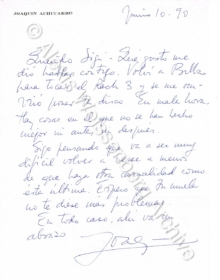 JOAQUIN ACHUCARRO
Junio 10-90
Querido Sipi - Que gusto me
dió hablar contigo. Volví a Bilbao
para tocar el Rach 3 y se me
pues el disco. En mala hora
hay cosas en el que no se han hecho
mejor ni antes ni después.
Sigo pensando que va a ser muy
difícil volver a a menos
de que haya otra casualidad como
esta última. Espero que Juanela
no te diese mas problemas.
En todo caso, ahí va un
abrazo
Joaquín